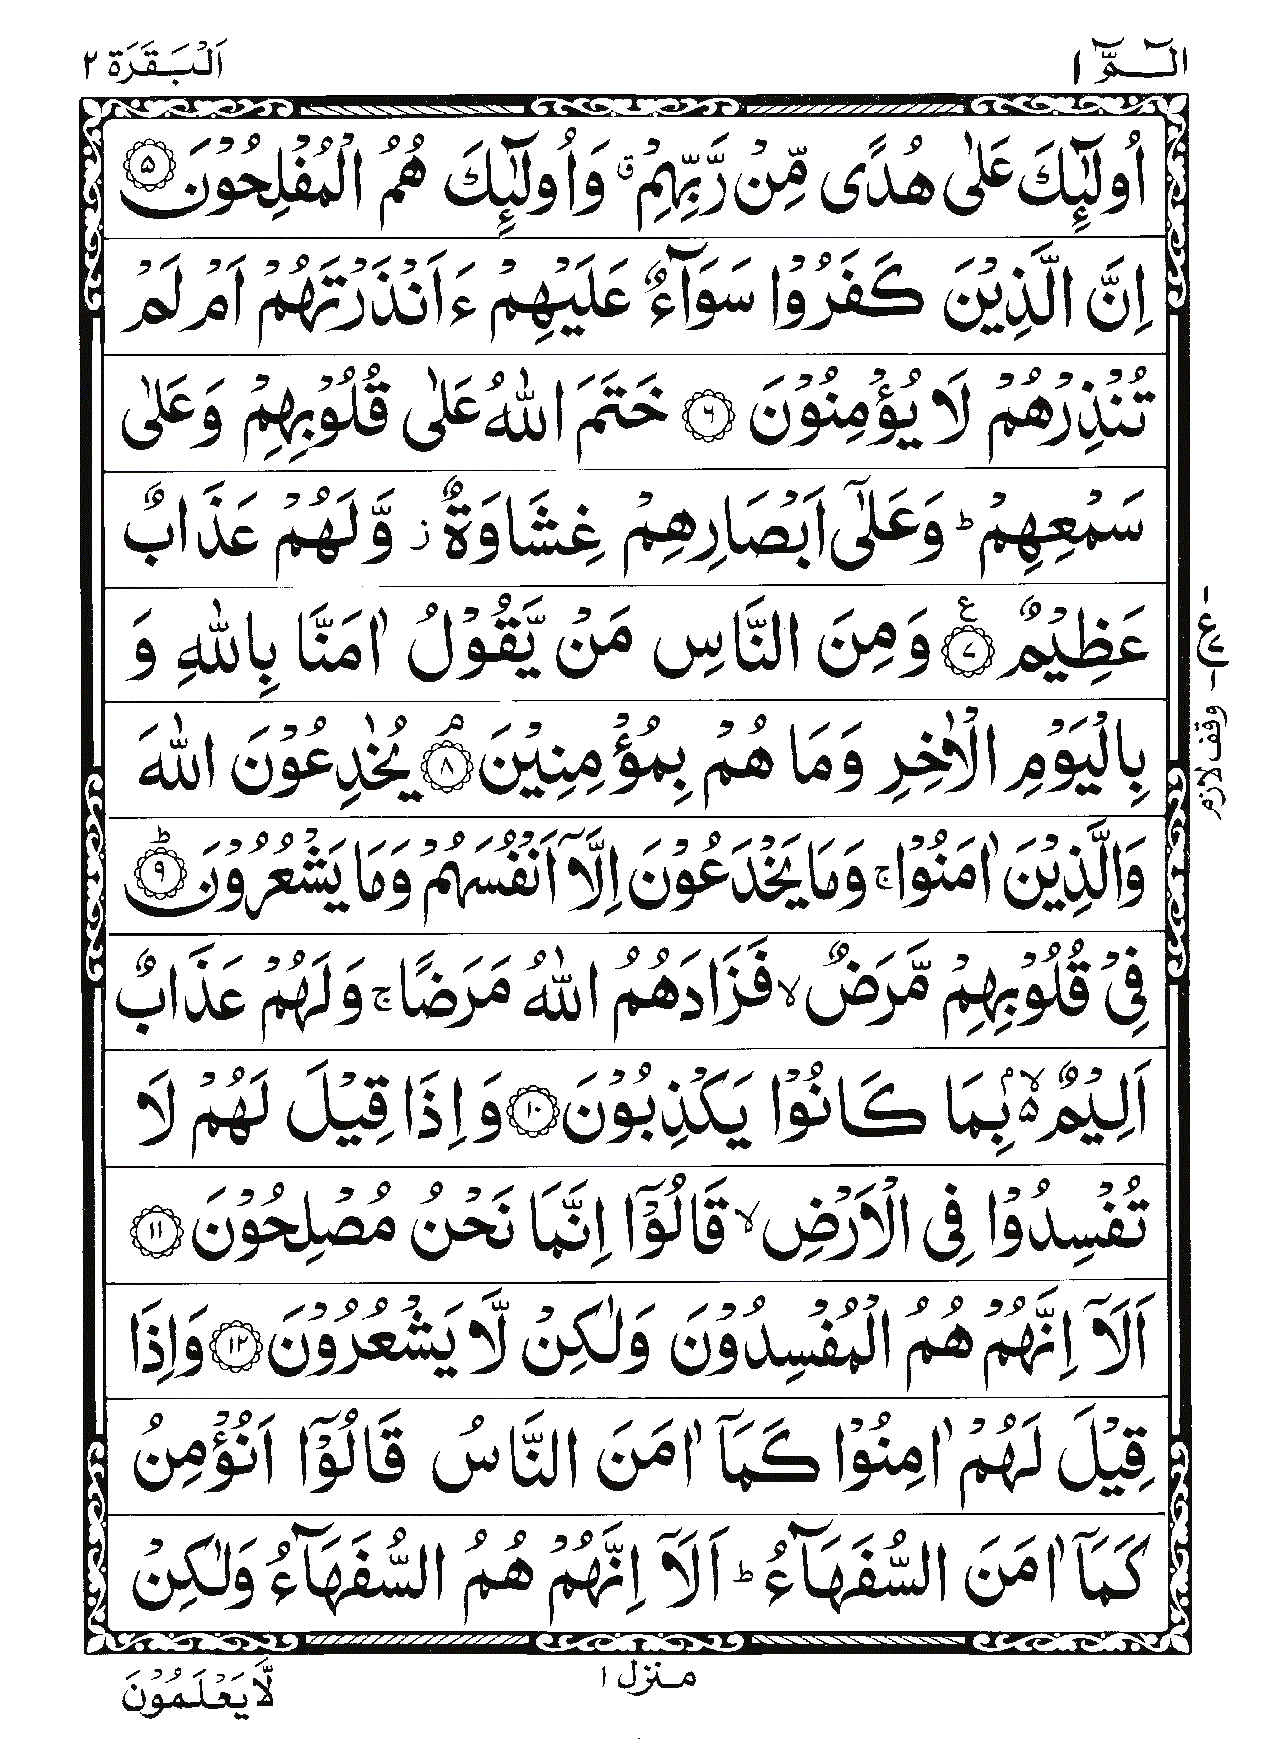 الٓـمّٓ ١
اَلْبَقَرَة ٢
اُولٰٓئِكَ عَلٰى هُدًى مِّنْ رَّبِّهِمْ ۗ وَاُولٰٓئِكَ هُمُ الْمُفْلِحُوْنَ ۝٥
اِنَّ الَّذِيْنَ كَفَرُوْا سَوَآءٌ عَلَيْهِمْ ءَاَنْذَرْتَهُمْ اَمْ لَمْ
تُنْذِرْهُمْ لَا يُؤْمِنُوْنَ ۝٦ خَتَمَ اللّٰهُ عَلٰى قُلُوْبِهِمْ وَعَلٰى
سَمْعِهِمْ ؕ وَعَلٰٓى اَبْصَارِهِمْ غِشَاوَةٌ ز وَّلَهُمْ عَذَابٌ
عَظِيْمٌ ۝٧ ع وَمِنَ النَّاسِ مَنْ يَّقُوْلُ اٰمَنَّا بِاللّٰهِ وَ
بِالْيَوْمِ الْاٰخِرِ وَمَا هُمْ بِمُؤْمِنِيْنَ ۝٨ۘ يُخٰدِعُوْنَ اللّٰهَ
وَالَّذِيْنَ اٰمَنُوْا ۚ وَمَا يَخْدَعُوْنَ اِلَّآ اَنْفُسَهُمْ وَمَا يَشْعُرُوْنَ ۝٩ؕ
فِيْ قُلُوْبِهِمْ مَّرَضٌ ۙ فَزَادَهُمُ اللّٰهُ مَرَضًا ۚ وَلَهُمْ عَذَابٌ
اَلِيْمٌ ۙ۵ۢ بِمَا كَانُوْا يَكْذِبُوْنَ ۝١٠ وَاِذَا قِيْلَ لَهُمْ لَا
تُفْسِدُوْا فِى الْاَرْضِ ۙ قَالُوْٓا اِنَّمَا نَحْنُ مُصْلِحُوْنَ ۝١١
اَلَآ اِنَّهُمْ هُمُ الْمُفْسِدُوْنَ وَلٰكِنْ لَّا يَشْعُرُوْنَ ۝١٢ وَاِذَا
قِيْلَ لَهُمْ اٰمِنُوْا كَمَآ اٰمَنَ النَّاسُ قَالُوْٓا اَنُؤْمِنُ
كَمَآ اٰمَنَ السُّفَهَآءُ ؕ اَلَآ اِنَّهُمْ هُمُ السُّفَهَآءُ وَلٰكِنْ
ع
وقف لازم
منزل ١
لَّا يَعْلَمُوْنَ